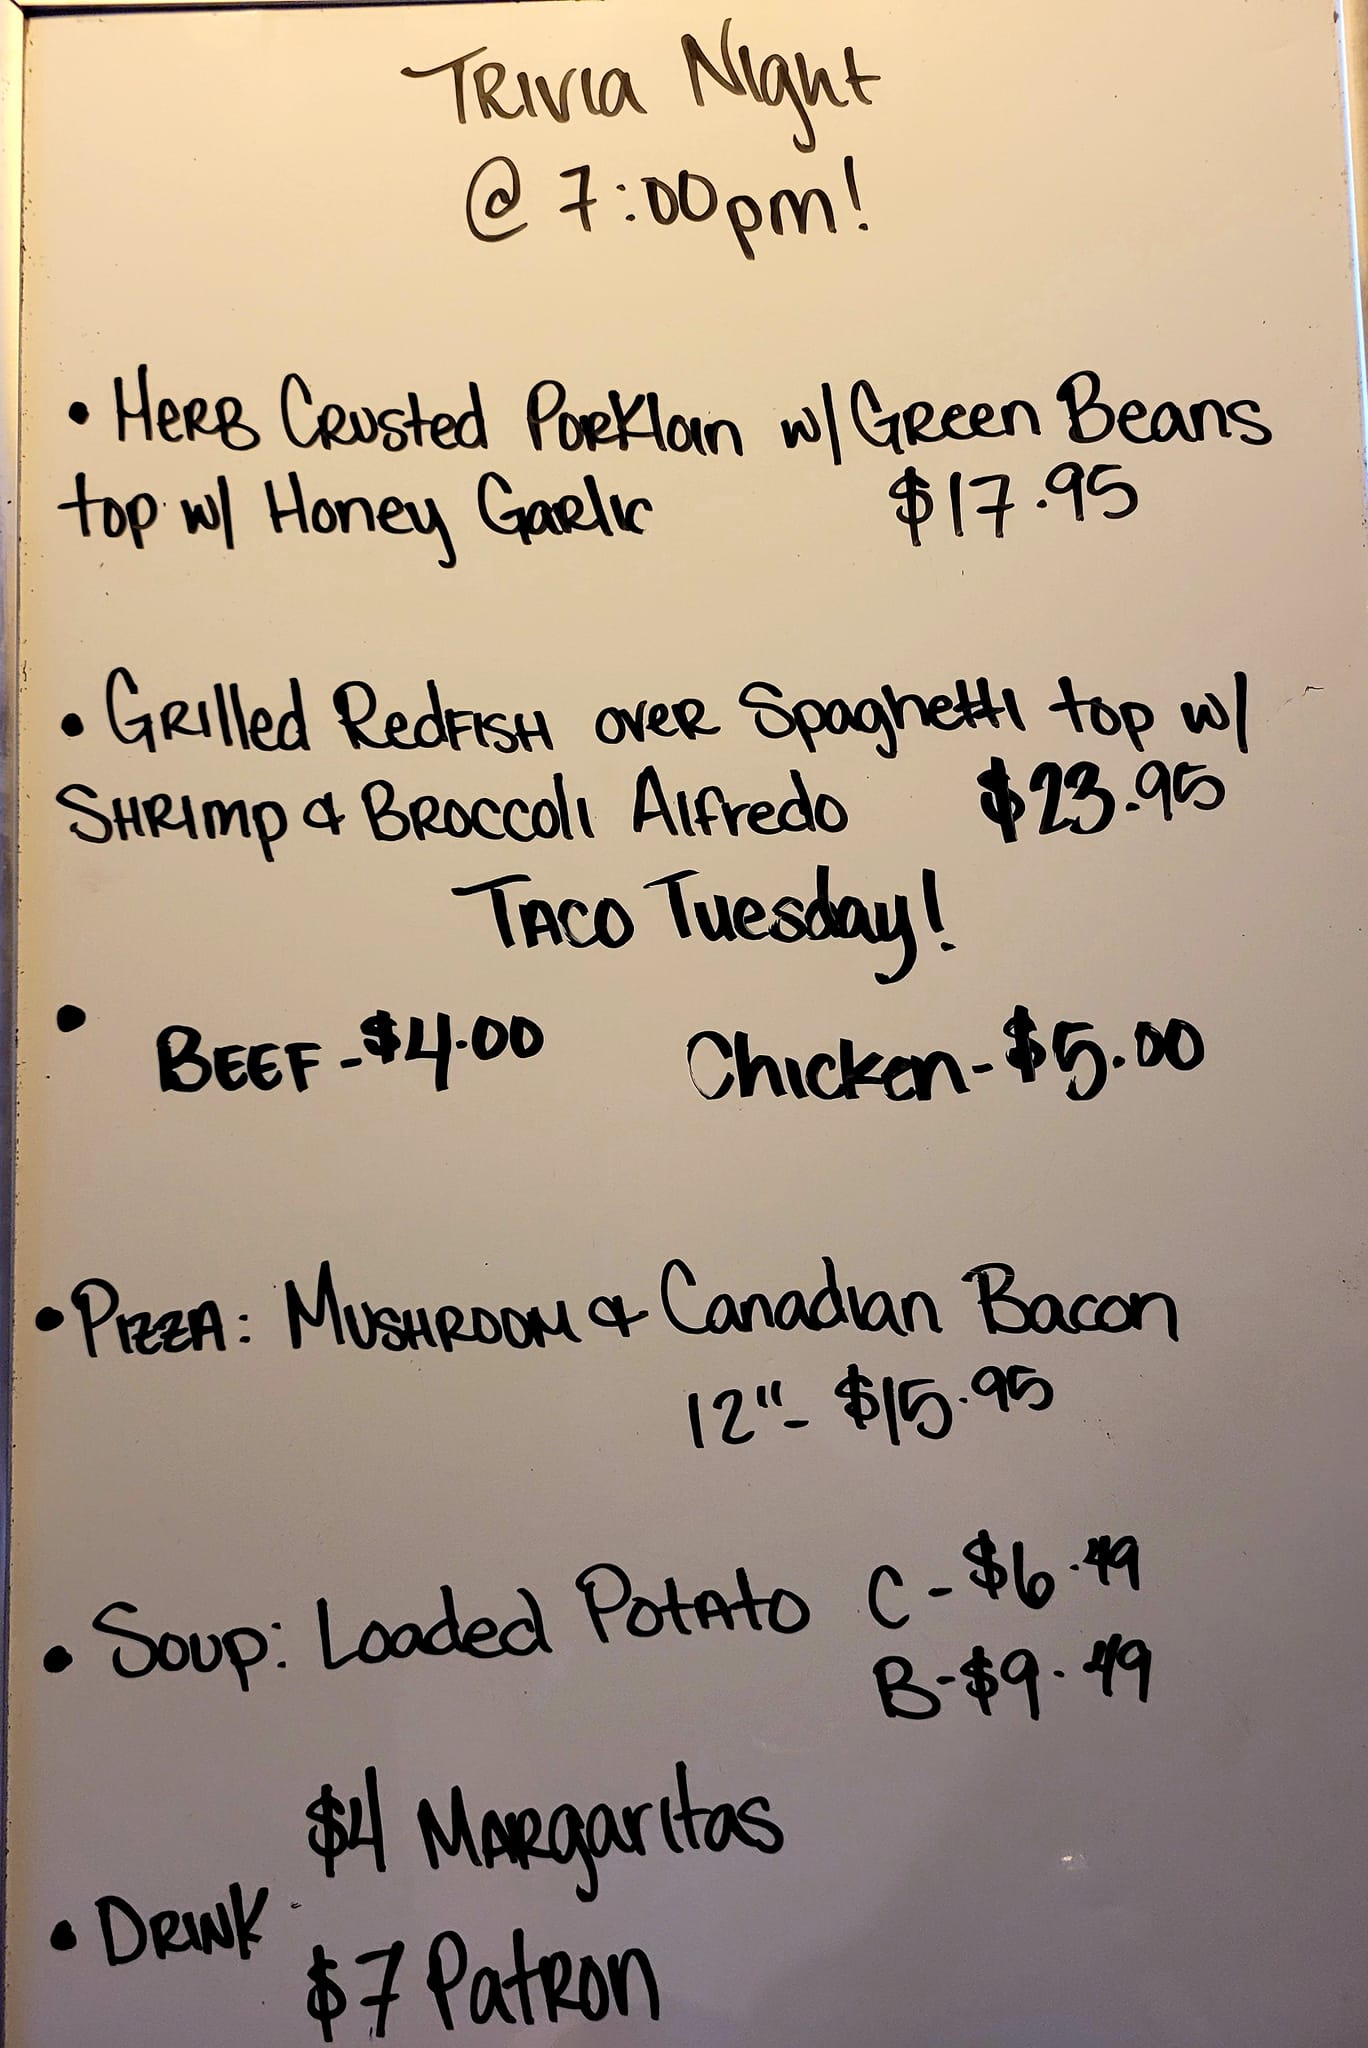 Trivia Night
@ 7:00pm!
• Herb Crusted Porkloin w/ Green Beans
top w/ Honey Garlic $17.95
• Grilled Redfish over Spaghetti top w/
Shrimp & Broccoli Alfredo $23.95
Taco Tuesday!
• Beef - $4.00 Chicken - $5.00
• Pizza: Mushroom & Canadian Bacon
12" - $15.95
• Soup: Loaded Potato C - $6.49
B - $9.49
$4 Margaritas
• Drink
$7 Patron